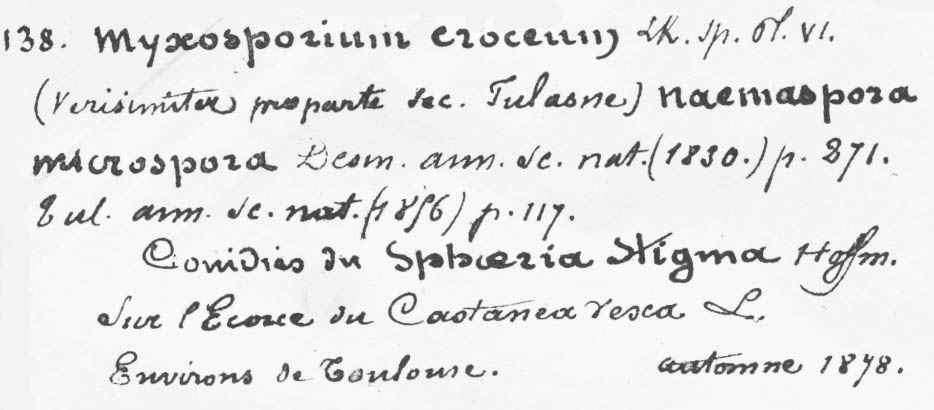 138. Myxosporium croceum Lk. Sp. Pl. VI.
(Verisimiter pro parte sec. Tulasne) Naemaspora
microspora Desm. ann. Sc. nat. (1830.) p. 271.
Tul. ann. Sc. nat. (1856) p. 117.
Conidies du Sphaeria Stigma Hoffm.
Sur l'Ecorce du Castanea vesca L.
Environs de Toulouse. automne 1878.